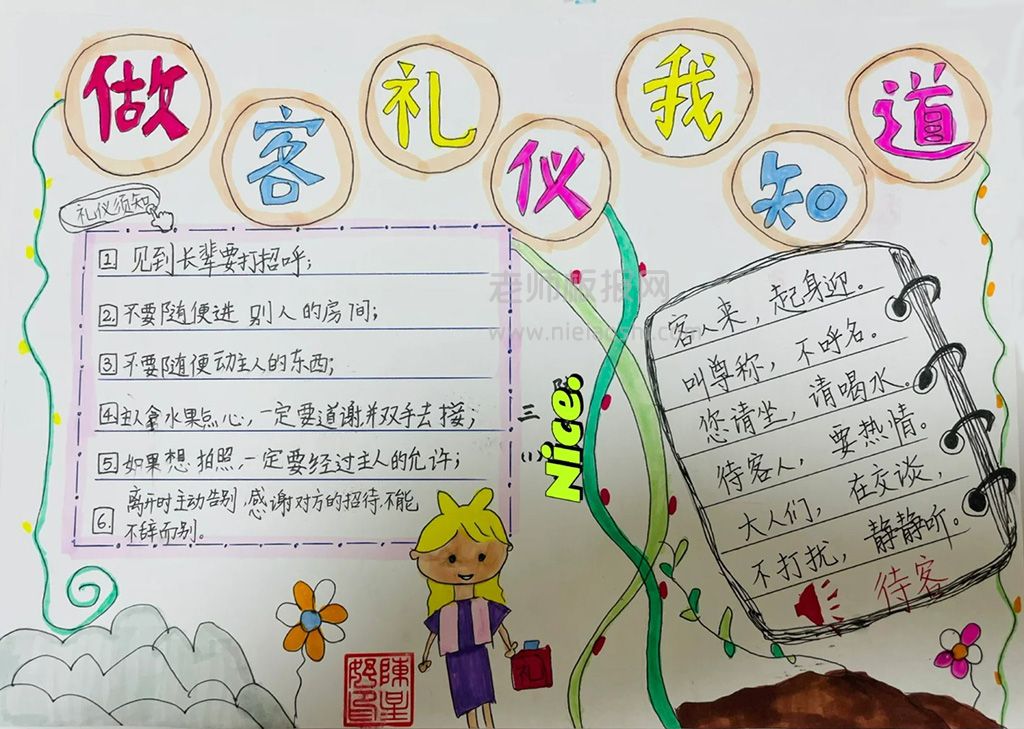 做客礼仪我知道
礼仪须知
1 见到长辈要打招呼；
2. 不要随便进别人的房间；
3 不要随便动主人的东西；
4 主人拿水果点心，一定要道谢并双手去接；
5 如果想拍照，一定要经过主人的允许；
6. 离开时主动告别，感谢对方的招待，不能
不辞而别。
老师板报网
Nice.
客人来，起身迎。
叫尊称，不呼名。
您请坐，请喝水。
待客人，要热情。
大人们，在交谈，
不打扰，静静听。
待客
礼